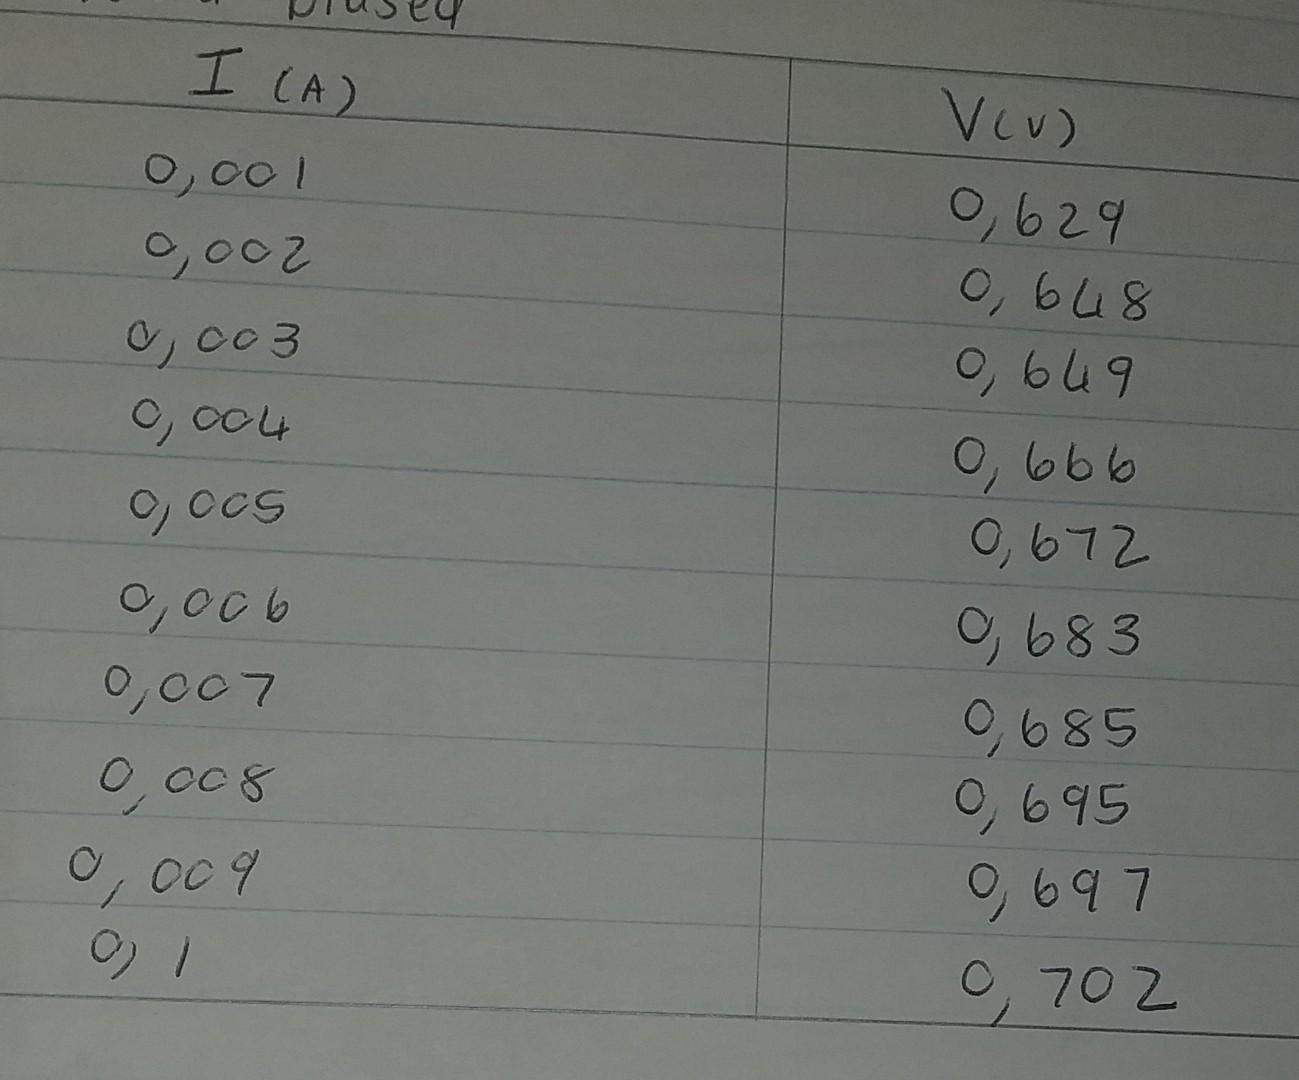 biased
I (A) V(V)
0,001 0,629
0,002 0,648
0,003 0,649
0,004 0,666
0,005 0,672
0,006 0,683
0,007 0,685
0,008 0,695
0,009 0,697
0,1 0,702